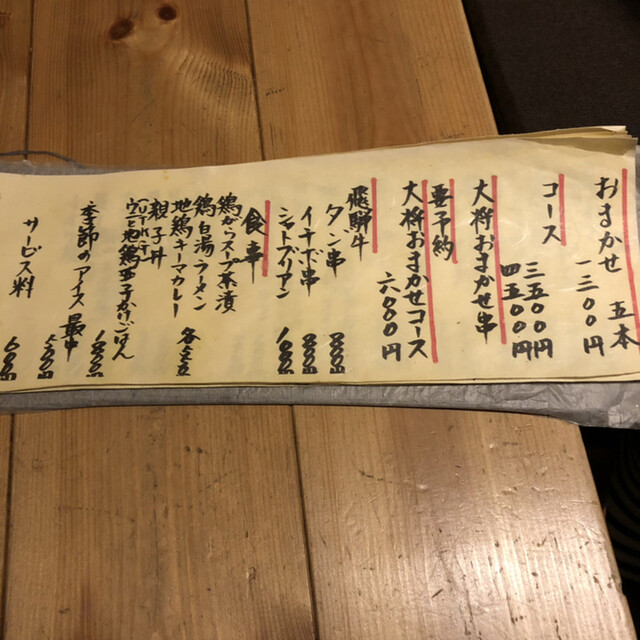 おまかせ 五本
一三〇〇円
コース
三五〇〇円
四五〇〇円
大将おまかせ串
要予約
大将おまかせコース
六〇〇〇円
飛騨牛
タン串 800
イチボ串 800
シャトーブリアン 1000
食事
鶏がらスープ茶漬
鶏白湯ラーメン
地鶏キーマカレー
親子丼
各
地鶏玉子かけごはん
1000
季節のアイス最中
500
サービス料
600